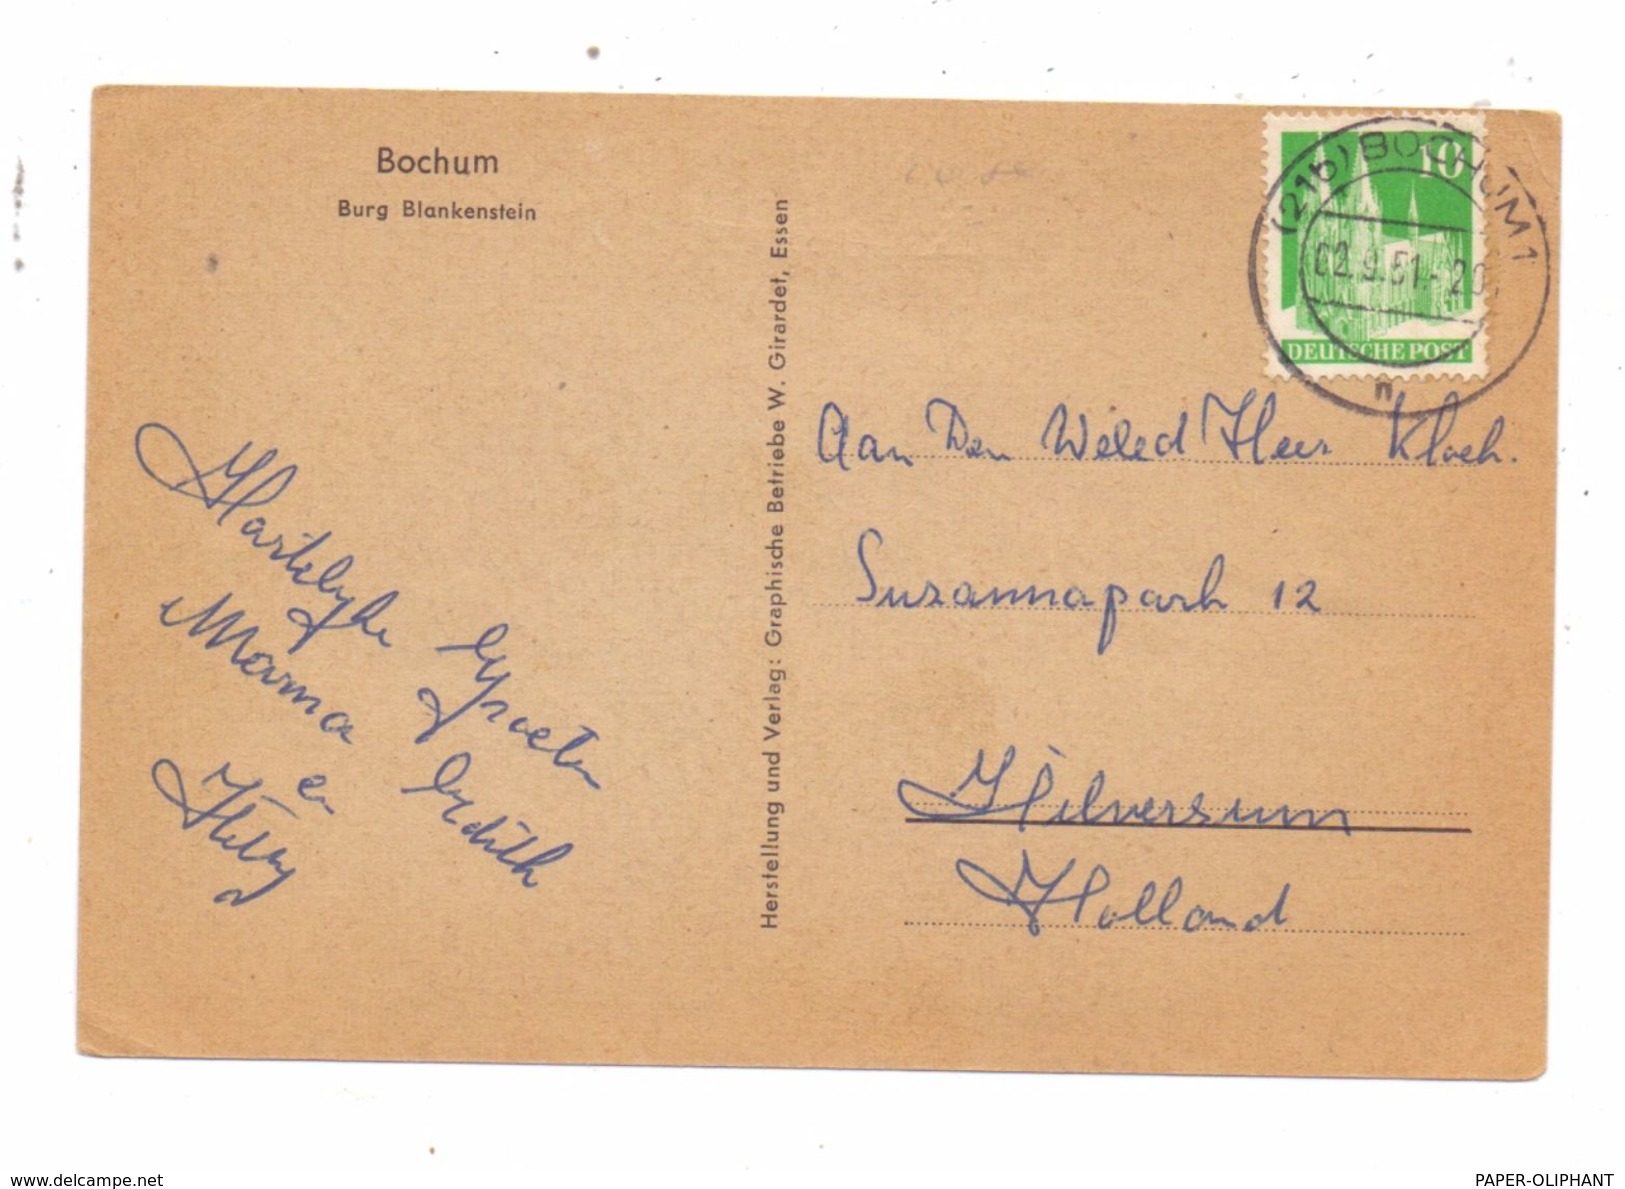 Bochum
Burg Blankenstein
Herstellung und Verlag: Graphische Betriebe W. Girardet, Essen
10
DEUTSCHE POST
(21b) BOCHUM 1
02.9.51.-20
n
Aan Den Weled Heer
Suzannapark 12
Hilversum
Holland
Hartelyke Groeten
Mama
en Edith
Hetty
www.delcampe.net
PAPER-OLIPHANT